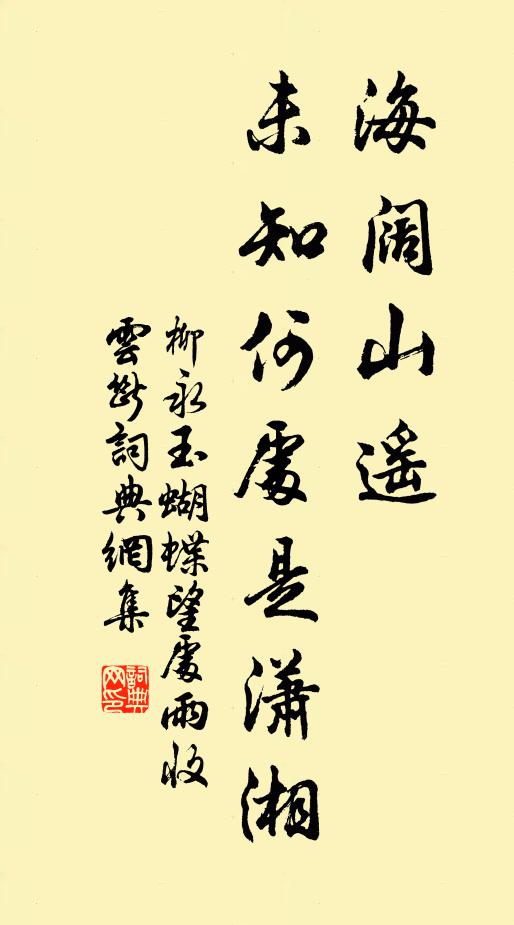 海阔山遥
未知何處是潇湘
柳永玉蝴蝶望處雨收
雲斷詞典網集
詞典
网印